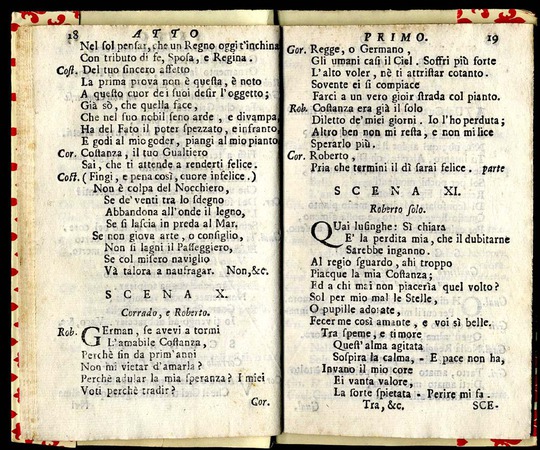 18 ATTO
Nel sol pensar, che un Regno oggi t'inchina
Con tributo di fe, Sposa, e Regina.
Cost. Del tuo sincero affetto
La prima prova non è questa, è noto
A questo cuor de i suoi desir l'oggetto;
Già sò, che quella face,
Che nel suo nobil seno arde, e divampa,
Ha del Fato il poter spezzato, e infranto,
E godi al mio goder, piangi al mio pianto.
Cor. Costanza, il tuo Gualtiero
Sai, che ti attende a renderti felice.
Cost. (Fingi, e pena così, cuore infelice.)
Non è colpa del Nocchiero,
Se de' venti tra lo sdegno
Abbandona all'onde il legno,
Se si lascia in preda al Mar.
Se non giova arte, o consiglio,
Non si lagni il Passeggiero,
Se col misero naviglio
Và talora a naufragar. Non,&c.
SCENA X.
Corrado, e Roberto.
Rob. German, se avevi a tormi
L'amabile Costanza,
Perchè sin da prim'anni
Non mi vietar d'amarla?
Perchè adular la mia speranza? I miei
Voti perchè tradir?
Cor.
PRIMO. 19
Cor. Regge, o Germano,
Gli umani casi il Ciel. Soffri più forte
L'alto voler, nè ti attristar cotanto.
Sovente ei si compiace
Farci a un vero gioir strada col pianto.
Rob. Costanza era già il solo
Diletto de' miei giorni. Io l'ho perduta;
Altro ben non mi resta, e non mi lice
Sperarlo più.
Cor. Roberto,
Pria che termini il dì sarai felice. parte
SCENA XI.
Roberto solo.
Quai lusinghe: Sì chiara
E' la perdita mia, che il dubitarne
Sarebbe inganno.
Al regio sguardo, ahi troppo
Piacque la mia Costanza;
Ed a chi mai non piacerìa quel volto?
Sol per mio mal le Stelle,
O pupille adorate,
Fecer me così amante, e voi sì belle.
Tra speme, e timore
Quest'alma agitata
Sospira la calma, - E pace non ha,
Invano il mio core
Ei vanta valore,
La sorte spietata - Perire mi fa.
Tra, &c. SCE-